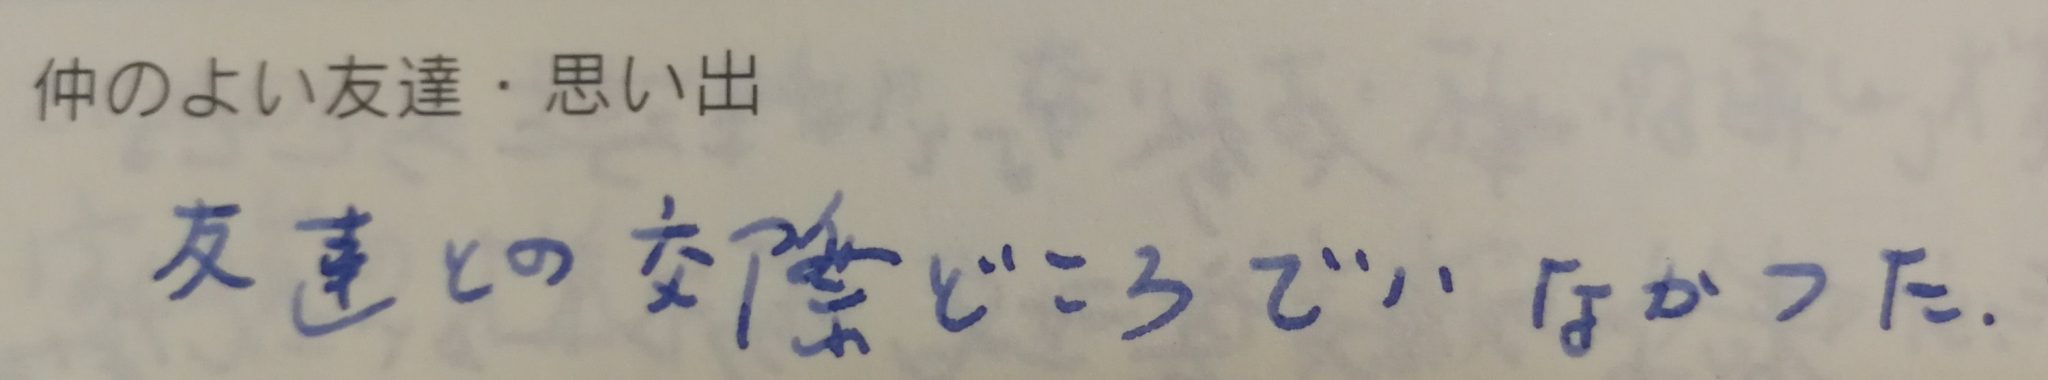 仲のよい友達・思い出
友達との交際どころでハなかつた.